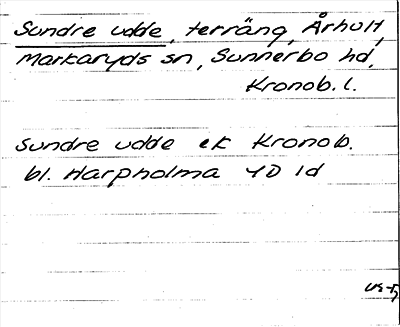 Sundre udde, terräng, Århult,
Markaryds sn, Sunnerbo hd,
Kronob. l.
Sundre udde ek Kronob.
bl. Harpholma 4D 1d